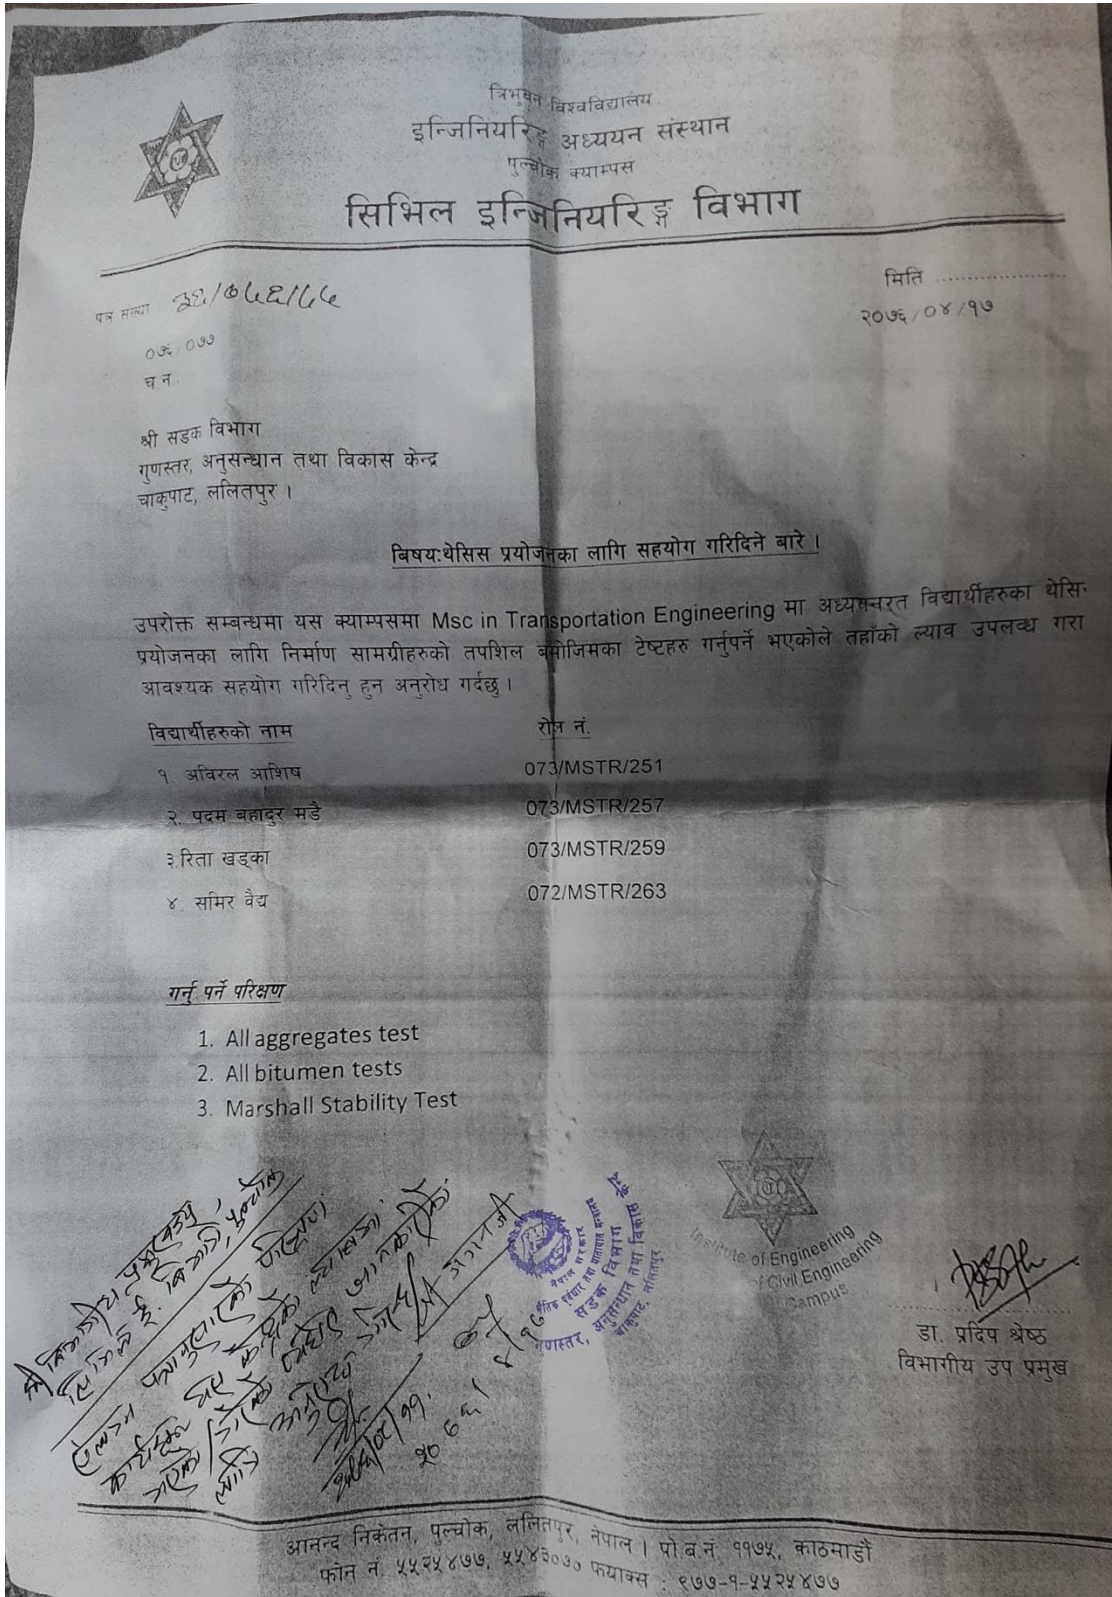 त्रिभुवन विश्वविद्यालय
इन्जिनियरिङ्ग अध्ययन संस्थान
पुल्चोक क्याम्पस
सिभिल इन्जिनियरिङ्ग विभाग
मिति ......................
पत्र संख्या
२०७६/०४/१७
०७६/०७७
च.नं.
श्री सडक विभाग
गुणस्तर, अनुसन्धान तथा विकास केन्द्र
चाकुपाट, ललितपुर ।
बिषय:थेसिस प्रयोजनका लागि सहयोग गरिदिने बारे ।
उपरोक्त सम्बन्धमा यस क्याम्पसमा Msc in Transportation Engineering मा अध्ययनरत विद्यार्थीहरुका थेसि
प्रयोजनका लागि निर्माण सामग्रीहरुको तपशिल बमोजिमका टेष्टहरु गर्नुपर्ने भएकोले तहाँको ल्याव उपलव्ध गरा
आवश्यक सहयोग गरिदिनु हुन अनुरोध गर्दछु ।
विद्यार्थीहरुको नाम रोल नं.
१. अविरल आशिष 073/MSTR/251
२. पदम बहादुर मडै 073/MSTR/257
३.रिता खड्का 073/MSTR/259
४. समिर वैद्य 072/MSTR/263
गर्नु पर्ने परिक्षण
1. All aggregates test
2. All bitumen tests
3. Marshall Stability Test
नेपाल सरकार
सडक विभाग
गुणस्तर, अनुसन्धान तथा विकास केन्द्र
चाकुपाट, ललितपुर
Institute of Engineering
of Civil Engineering
Campus
डा. प्रदिप श्रेष्ठ
विभागीय उप प्रमुख
आनन्द निकेतन, पुल्चोक, ललितपुर, नेपाल । पो.ब.नं. ११७५, काठमाडौं
फोन नं. ५५२५४७७, ५५४३०७० फयाक्स : ९७७-१-५५२५४७७